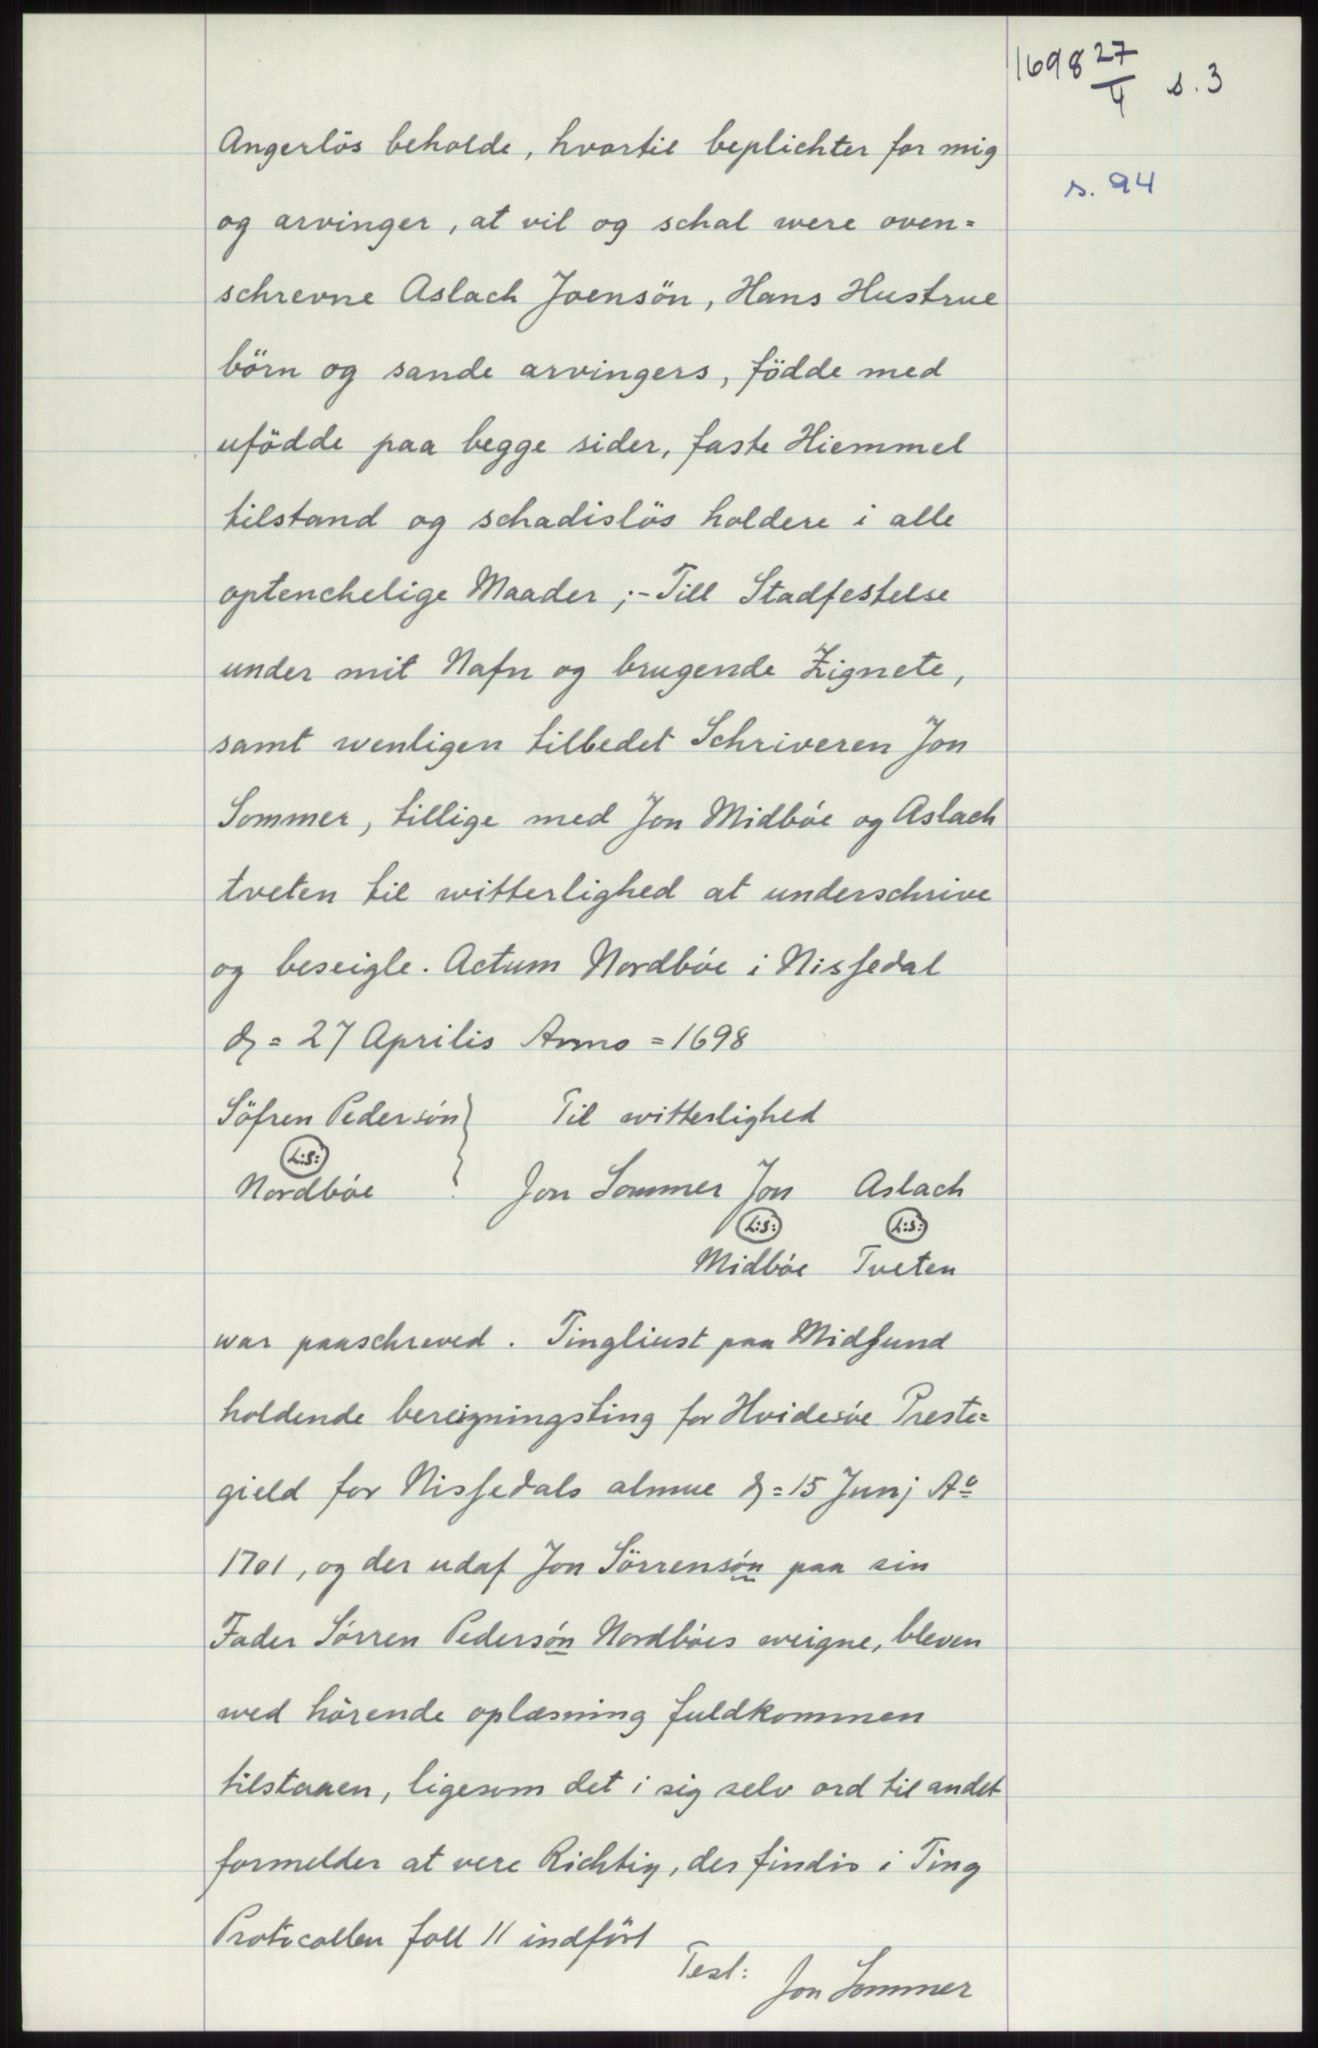 1698 27/4 s. 3
s. 94
Angerlös beholde, hvortil beplichter for mig
og arvinger, at vil og schal were oven=
schrevne Aslach Joensön, Hans Hustrue
börn og sande arvingers, födde med
ufödde paa begge sider, faste Hiemmel
tilstand og schadislös holdere i alle
optenchelige Maader ;- Till Stadfestelse
under mit Nafn og brugende Zignete,
samt wenligen tilbedet Schriveren Jon
Sommer, tillige med Jon Midbóe og Aslach
tveten til witterlighed at underschrive
og beseigle. Actum Nordbóe i Nissedal
d = 27 Aprilis Anno = 1698
Söfren Pedersón } Til witterlighed
L:S:
Nordbóe Jon Sommer Jon Aslach
L:S: L:S:
Midbóe Tveten
war paaschreved. Tingliust paa Midsund
holdende bereigningsting for Hvidesóe Preste=
gield for Nissedals almue d = 15 Junj Ao
1701, og der udaf Jon Sörrensón paa sin
Fader Sórren Pedersón Nordbóes weigne, bleven
wed hórende oplæsning fuldkommen
tilstaaen, ligesom det i sig selv ord til andet
formelder at vere Richtig, der findis i Ting
Protocollen foll 11 indfórt
Test: Jon Sommer